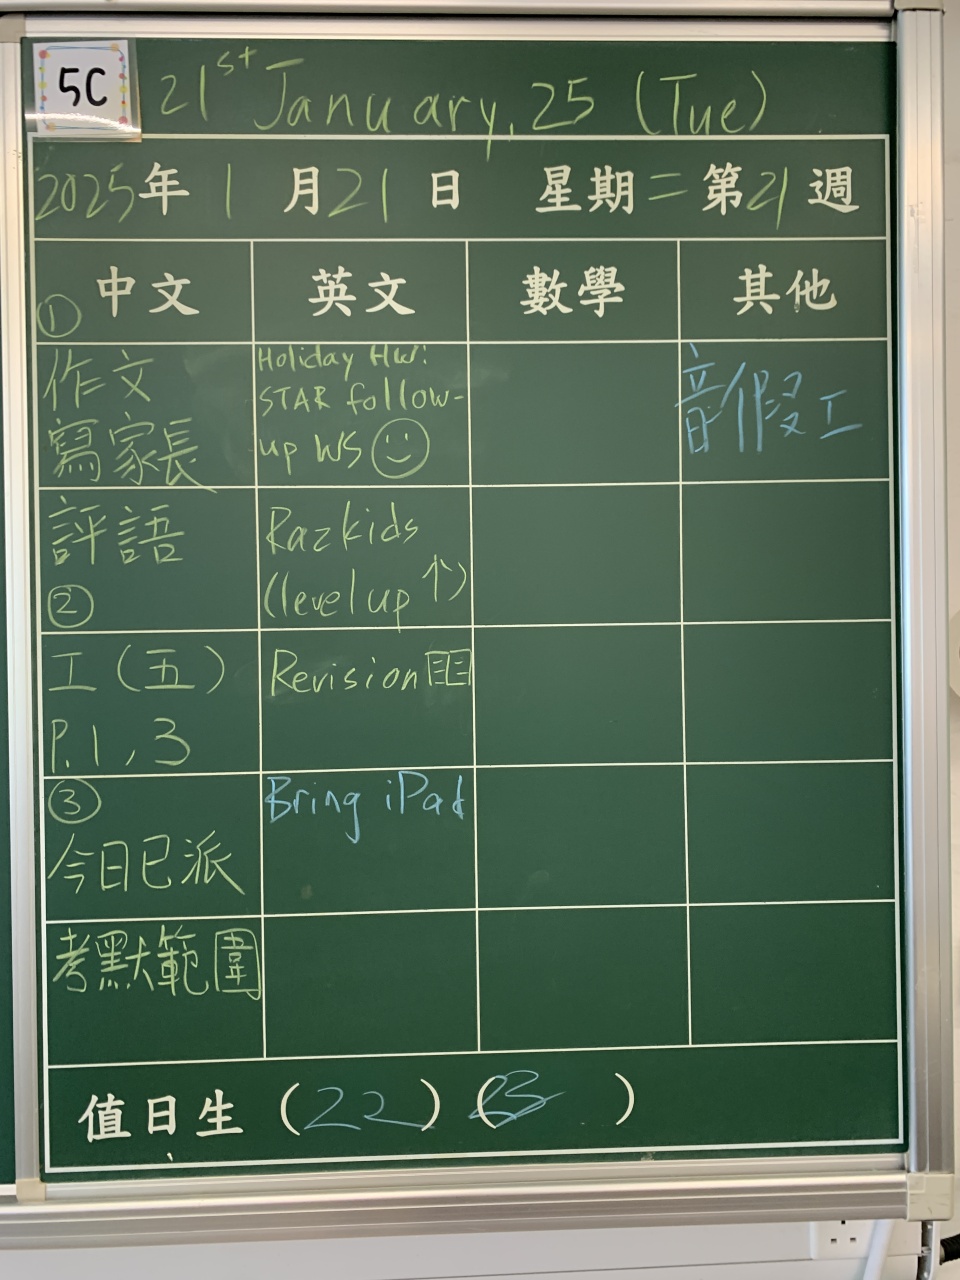 5C
21st January, 25 (Tue)
2025年 1 月 21 日 星期二 第21週
中文 英文 數學 其他
①
作文
寫家長
評語
②
工(五)
P.1,3
③
今日已派
考默範圍
Holiday HW:
STAR follow-
up WS
Razkids
(level up ↑)
Revision
Bring iPad
音假工
值日生 (22) ( )